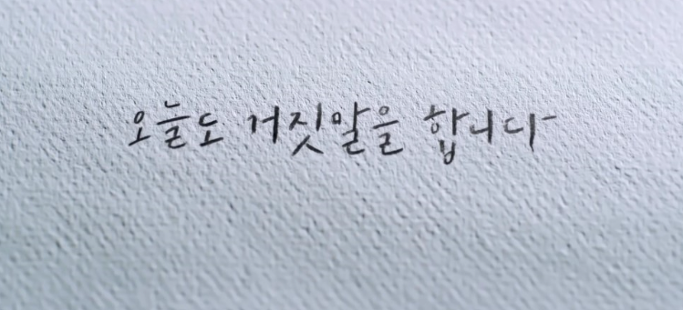 오늘도 거짓말을 합니다